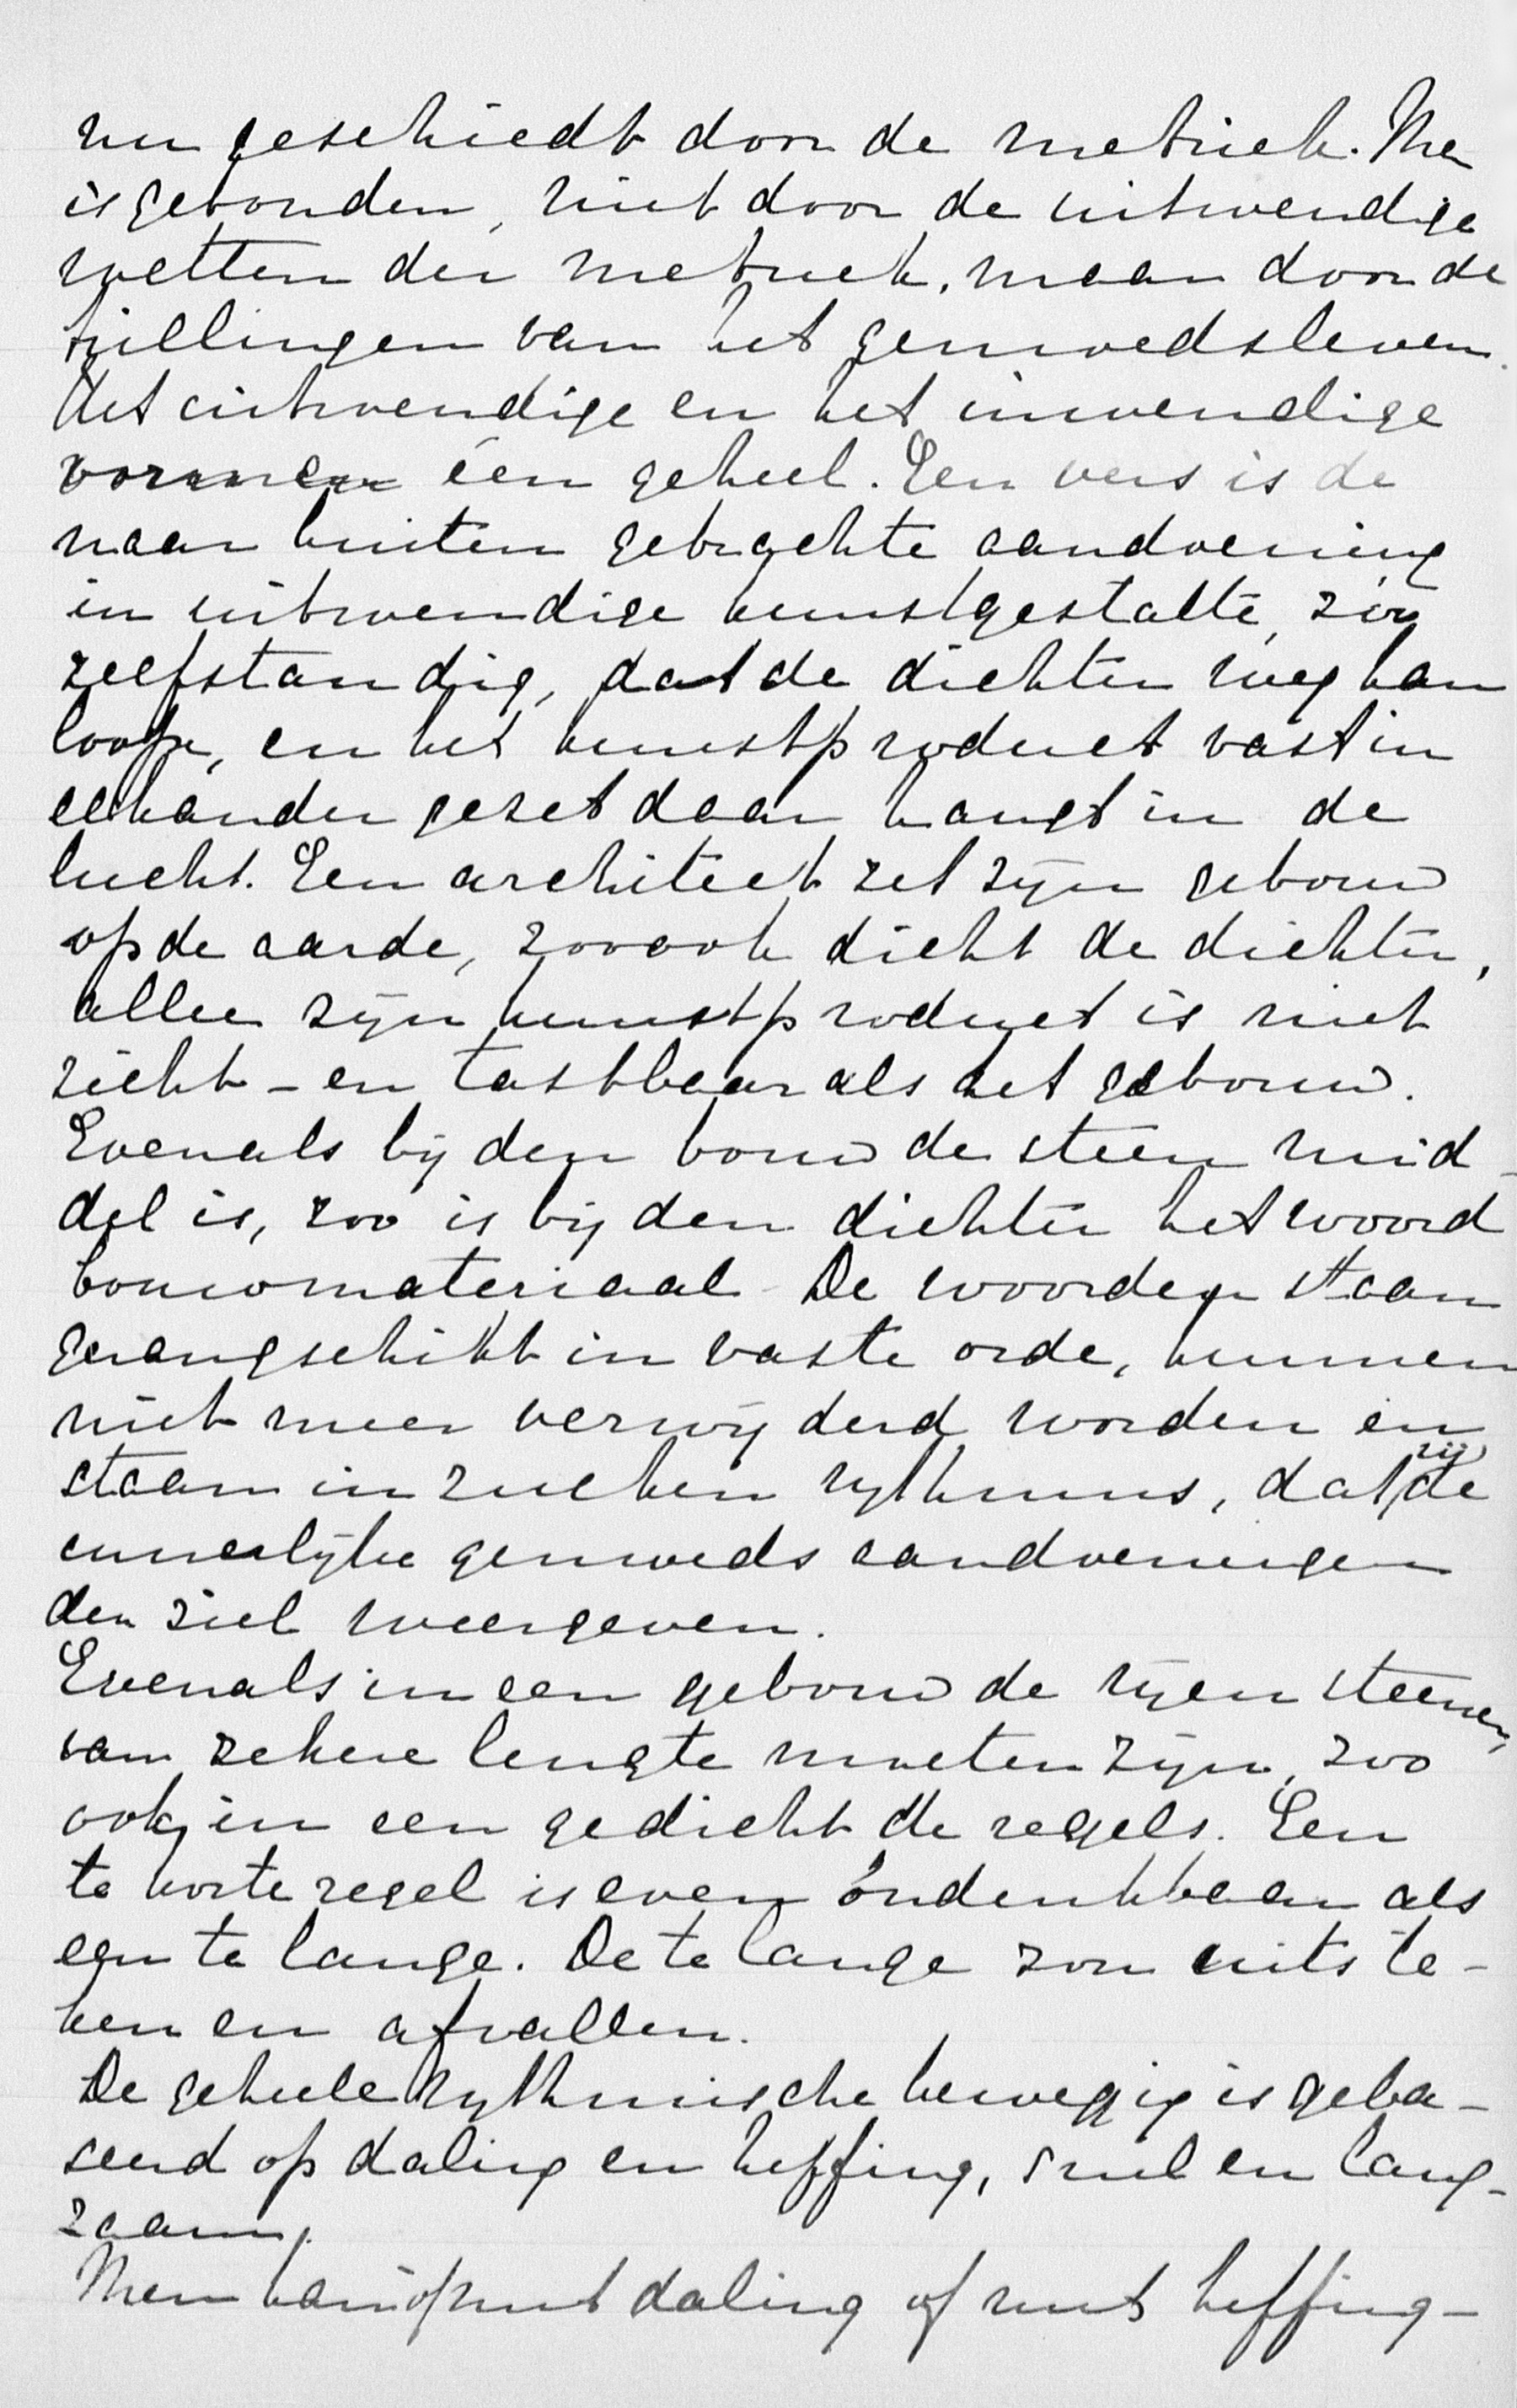 nu geschiedt door de metriek. Men
is gebonden, niet door de uitwendige
wetten der metriek, maar door de
trillingen van het gemoedsleven.
Het uitwendige en het inwendige
vormen één geheel. Een vers is de
naar buiten gebrachte aandoening
in uitwendige kunstgestalte, zóó
zelfstandig, dat de dichter weg kan
loopen, en het kunstproduct vast in
elkander gezet daar hangt in de
lucht. Een architect zet zijn gebouw
op de aarde, zooook dicht de dichter,
alleen zijn kunstproduct is niet
zicht- en tastbaar als het gebouw.
Evenals bij den bouw de steen mid-
del is, zoo is bij den dichter het woord
bouwmateriaal. De woorden staan
gerangschikt in vaste orde, kunnen
niet meer verwijderd worden en
staan in zulken rythmus, dat zij de
innerlijke gemoedsaandoeningen
der ziel weergeven.
Evenals in een gebouw de rijen steenen,
van zekere lengte moeten zijn, zoo
ook in een gedicht de regels. Een
te korte regel is even ondenkbaar als
een te lange. De te lange zou uitste-
ken en afvallen.
De geheele rythmische beweging is geba-
seerd op daling en heffing, snel en lang-
zaam.
Men kan of met daling of met heffing-